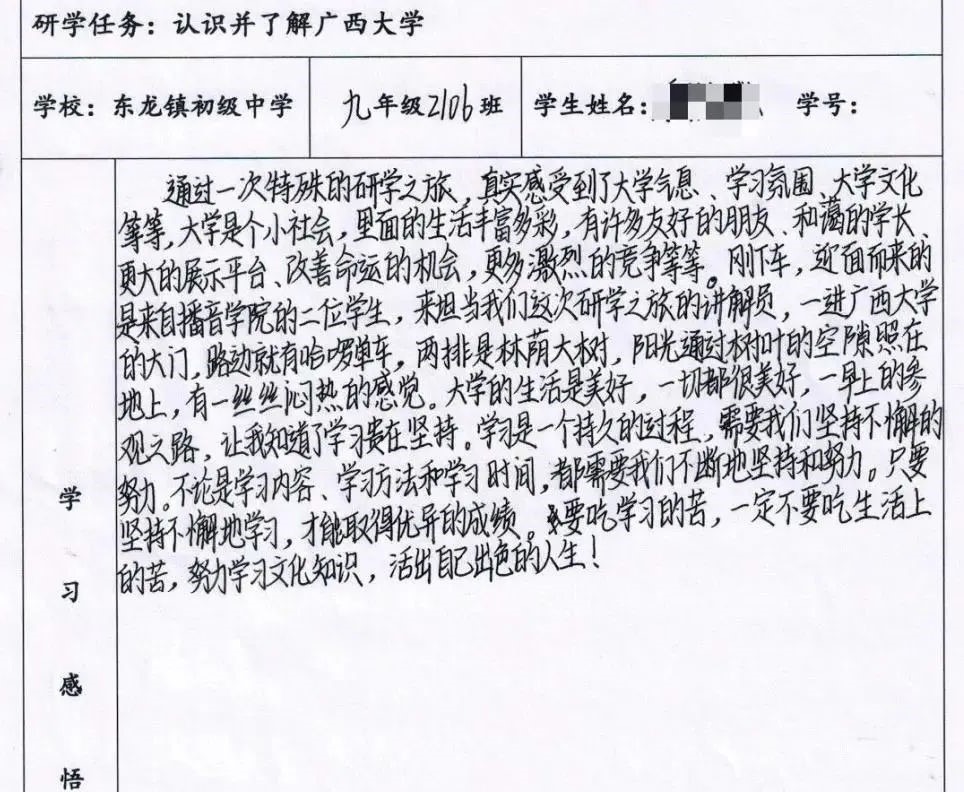 研学任务：认识并了解广西大学
学校：东龙镇初级中学 九年级2106班 学生姓名： 学号：
通过一次特殊的研学之旅，真实感受到了大学气息、学习氛围、大学文化
等等，大学是个小社会，里面的生活丰富多彩，有许多友好的朋友、和蔼的学长、
更大的展示平台、改善命运的机会，更多激烈的竞争等等。刚下车，迎面而来的
是来自播音学院的二位学生，来担当我们这次研学之旅的讲解员，一进广西大学
的大门，路边就有哈啰单车，两排是林荫大树，阳光通过树叶的空隙照在
地上，有一丝丝闷热的感觉。大学的生活是美好，一切都很美好，一早上的参
观之路，让我知道了学习贵在坚持。学习是一个持久的过程，需要我们坚持不懈的
努力。不论是学习内容、学习方法和学习时间，都需要我们不断地坚持和努力。只要
坚持不懈地学习，才能取得优异的成绩。要吃学习的苦，一定不要吃生活上
的苦，努力学习文化知识，活出自己出色的人生！
学习感悟